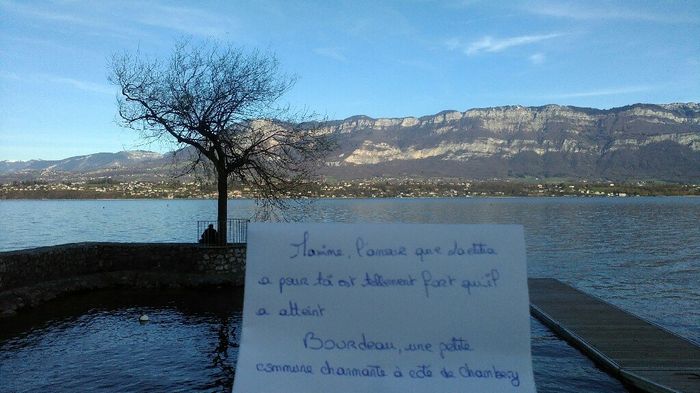 Maxime, l'amour que Laetitia
a pour toi est tellement fort qu'il
a atteint
Bourdeau, une petite
commune charmante à coté de Chambery